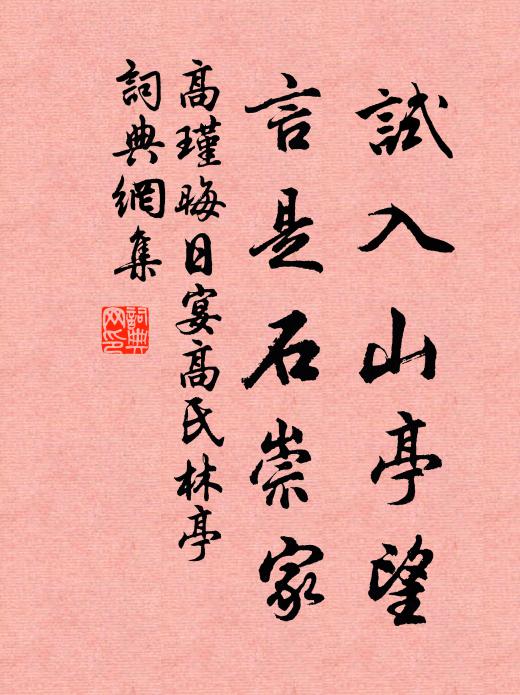 試入山亭望
言是石崇家
高瑾晦日宴高氏林亭
詞典網集
詞典
网印